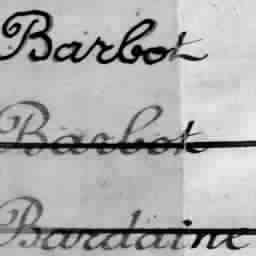 Barbot
Barbot
Bardaine